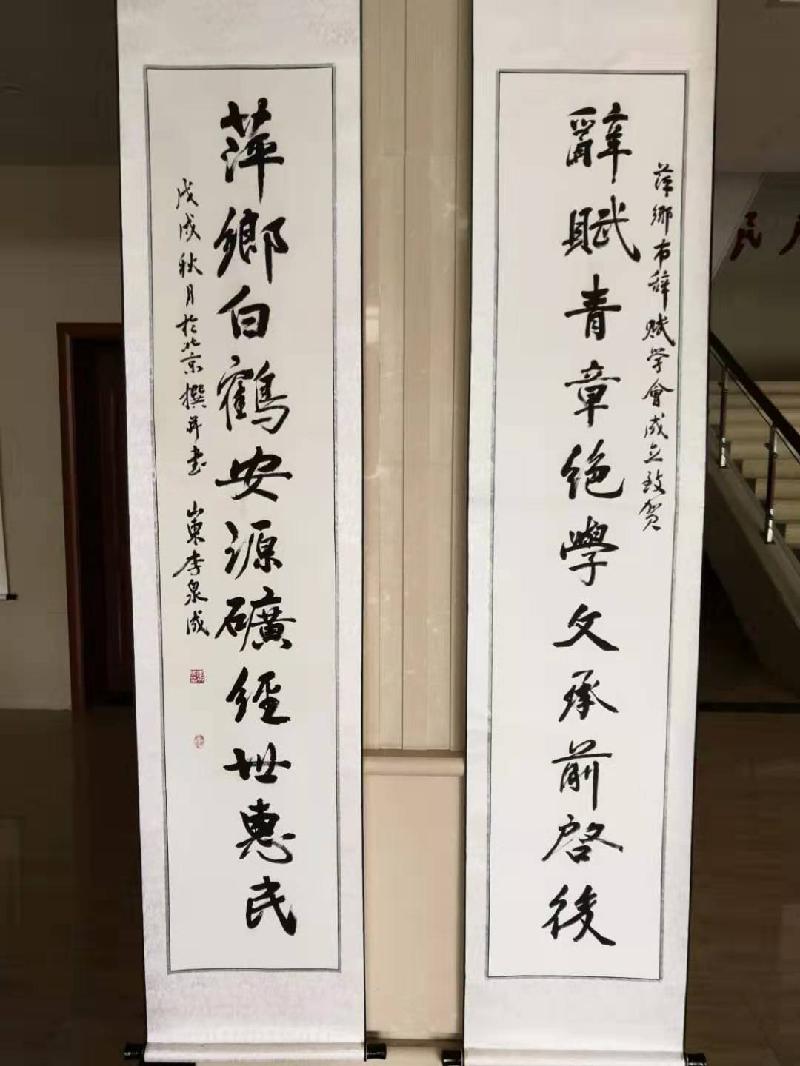 萍鄉市辭賦学會成立致贺
辭賦青章绝學文承前啓後
萍鄉白鶴安源礦經世惠民
戊戌秋月於北京撰并书 山東李泉成
民